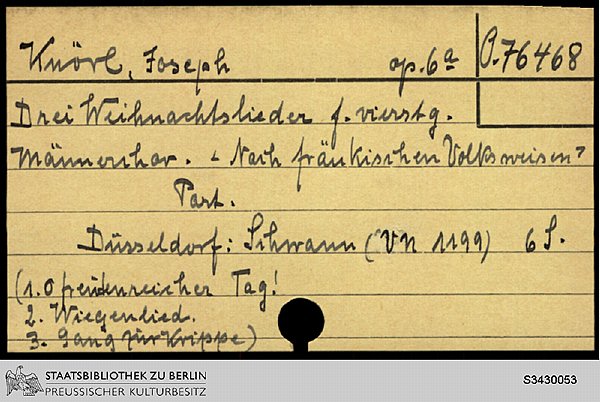 Knörl, Joseph op. 6a O.76468
Drei Weihnachtslieder f. vierstg.
Männerchor. - Nach fränkischen Volksweisen -
Part.
Düsseldorf: Schwann (VN 1199) 6 S.
(1. O freudenreicher Tag!
2. Wiegenlied.
3. Gang zur Krippe)
STAATSBIBLIOTHEK ZU BERLIN
PREUSSISCHER KULTURBESITZ
S3430053